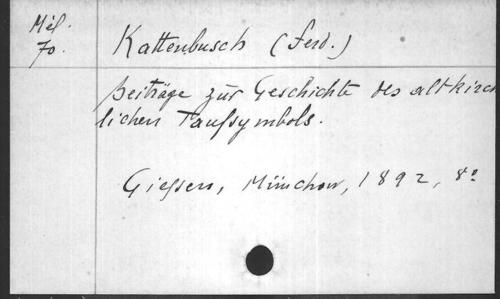 Mél.
70.
Kattenbusch (Ferd.)
Beiträge zur Geschichte des altkirch
lichen Taufsymbols.
Giessen, Münchow, 1892, 8º